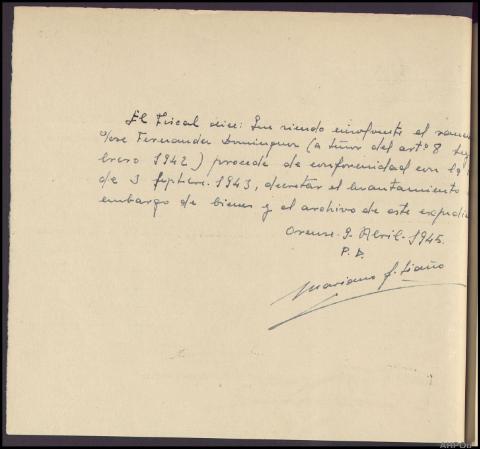 El Fiscal dice: Que siendo insolvente el
José Fernandez Dominguez (a tenor del artº 8
brero 1942) procede de conformidad con la
de 3 Septbre. 1943, decretar el levantamiento
embargo de bienes y el archivo de este expedie
Orense. 9. Abril. 1945.
P. D.
Mariano F. Liaño
AHPOu